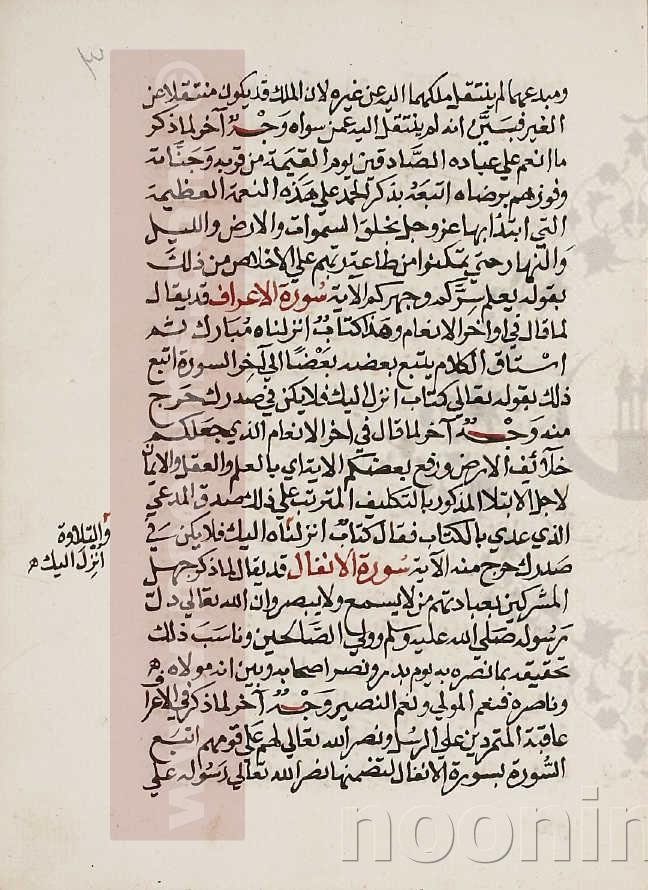 ومبدعهما لم ينتقل ملكهما اليه عن غيره لان الملك قد يكون منتقلا عن
الغير فبين انه لم ينتقل اليه عمن سواه وجه آخر لما ذكر
ما انعم علي عباده الصادقين يوم القيمة من قربه وجناته
وفوزهم برضاه اتبعه بذكر الحمد علي هذه النعمة العظيمة
التي ابتدأ بها عز وجل بخلق السموات والارض والليل
والنهار حتي يتمكنوا من طاعة ربهم علي الاخلاص من ذلك
بقوله يعلم سركم وجهركم الآية سورة الاعراف قد يقال
لما قال في اواخر الانعام وهذا كتاب انزلناه مبارك ثم
استاق الكلام يتبع بعضه بعضا الي آخر السورة اتبع
ذلك بقوله تعالي كتاب انزل اليك فلا يكن في صدرك حرج
منه وجه آخر لما قال في اخر الانعام الذي جعلكم
خلائف الارض ورفع بعضكم الايتاي بالعلم والعقل والايمان
لاجل الابتلا المذكور بالتكليف المترتب علي ذلك صدق المدعي
الذي عدي بالكتاب فقال كتاب انزلناه اليك فلا يكن في
صدرك حرج منه الآية سورة الانفال قد يقال لما ذكر جهل
المشركين بعبادتهم من لا يسمع ولا يبصر وان الله تعالي ولي
رسوله صلي الله عليه وسلم وولي الصالحين وناسب ذلك
تحقيقه بما نصره به يوم بدر ونصر اصحابه وبين انه مولاه
وناصره فنعم المولي ونعم النصير وجه آخر لما ذكر في الاعراف
عاقبة المتمردين علي الرسل ونصر الله تعالي لهم علي قومهم اتبع
السورة بسورة الانفال لتضمنها نصر الله تعالي رسوله علي
والتلاوة
انزل اليك
noonin